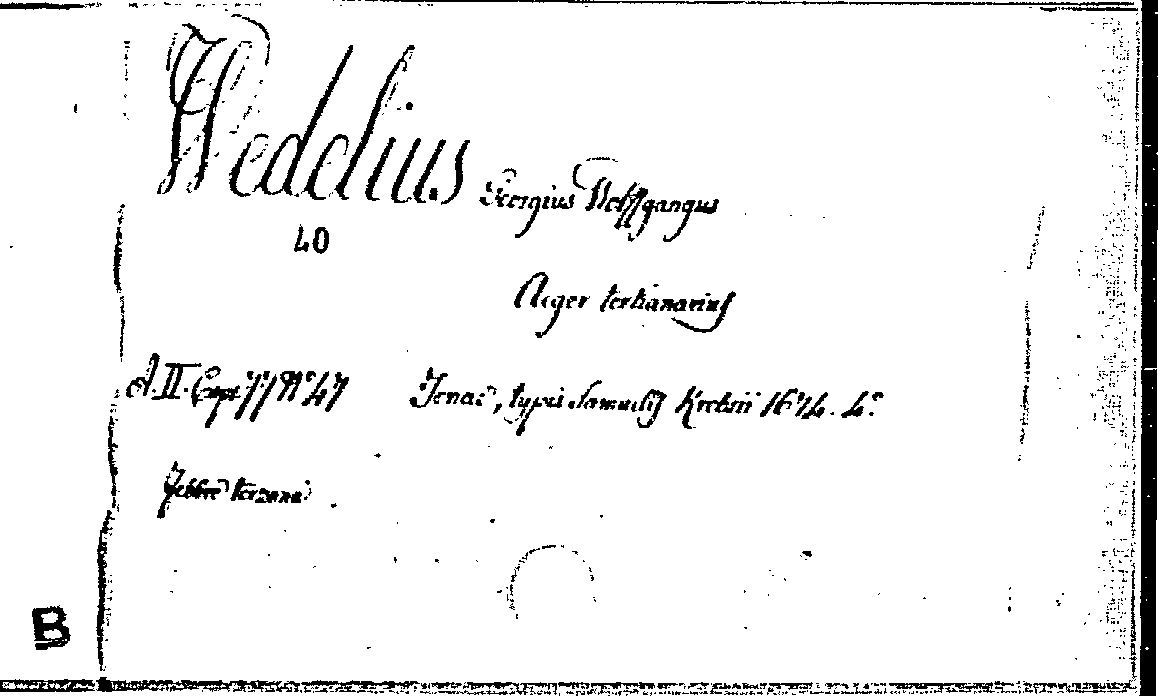 Wedelius Georgius Wolffgangus
40
Aeger tertianarius
A. II. Caps. 77 N.° 47 Jenae, typis Samuelis Krebsii 1674. 4.°
Febbre terzana
B